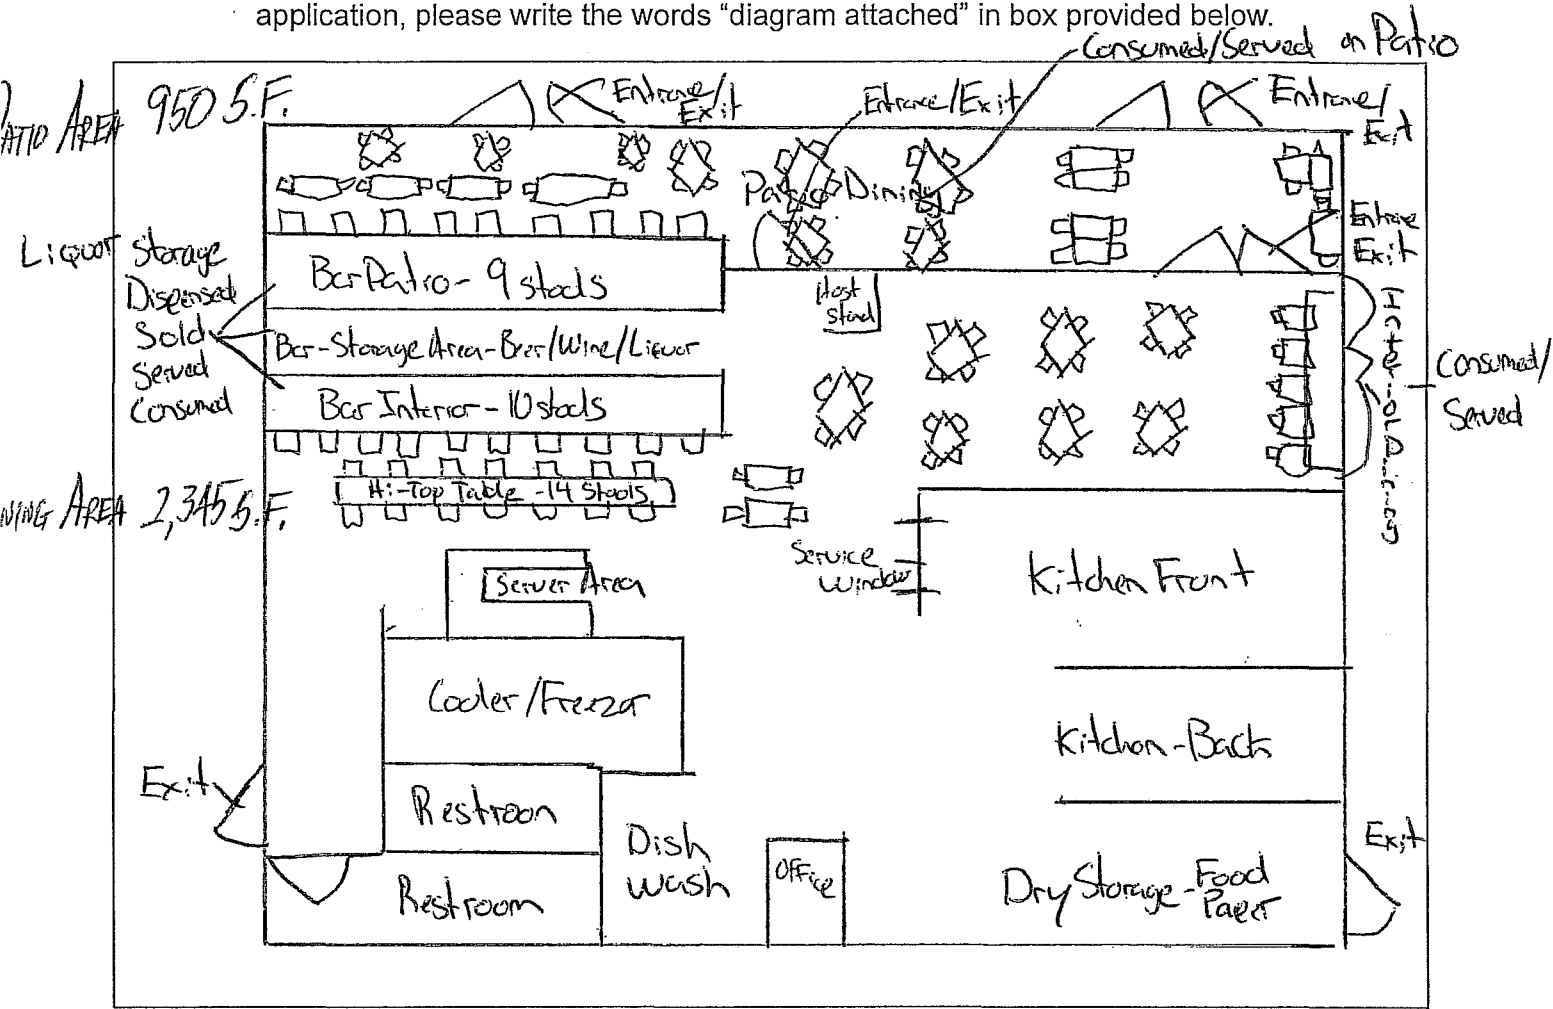 application, please write the words “diagram attached” in box provided below.
Consumed/Served on Patio
PATIO AREA 950 S.F.
Entrance/
Exit
Entrance/Exit
Entrance/
Exit
Patio Dining
Entrance
Exit
Liquor Storage
Dispensed
Sold
Served
Consumed
Bar Patio - 9 stools
Host
stand
Bar-Storage Area-Beer/Wine/Liquor
Bar Interior - 10 stools
Interior Dining
Consumed/
Served
Hi-Top Table - 14 Stools
NING AREA 2,345 S.F.
Service
Window
Kitchen Front
Server Area
Cooler/Freezer
Kitchen-Back
Exit
Restroom
Dish
Wash
Office
Exit
Restroom
Dry Storage - Food
Paper